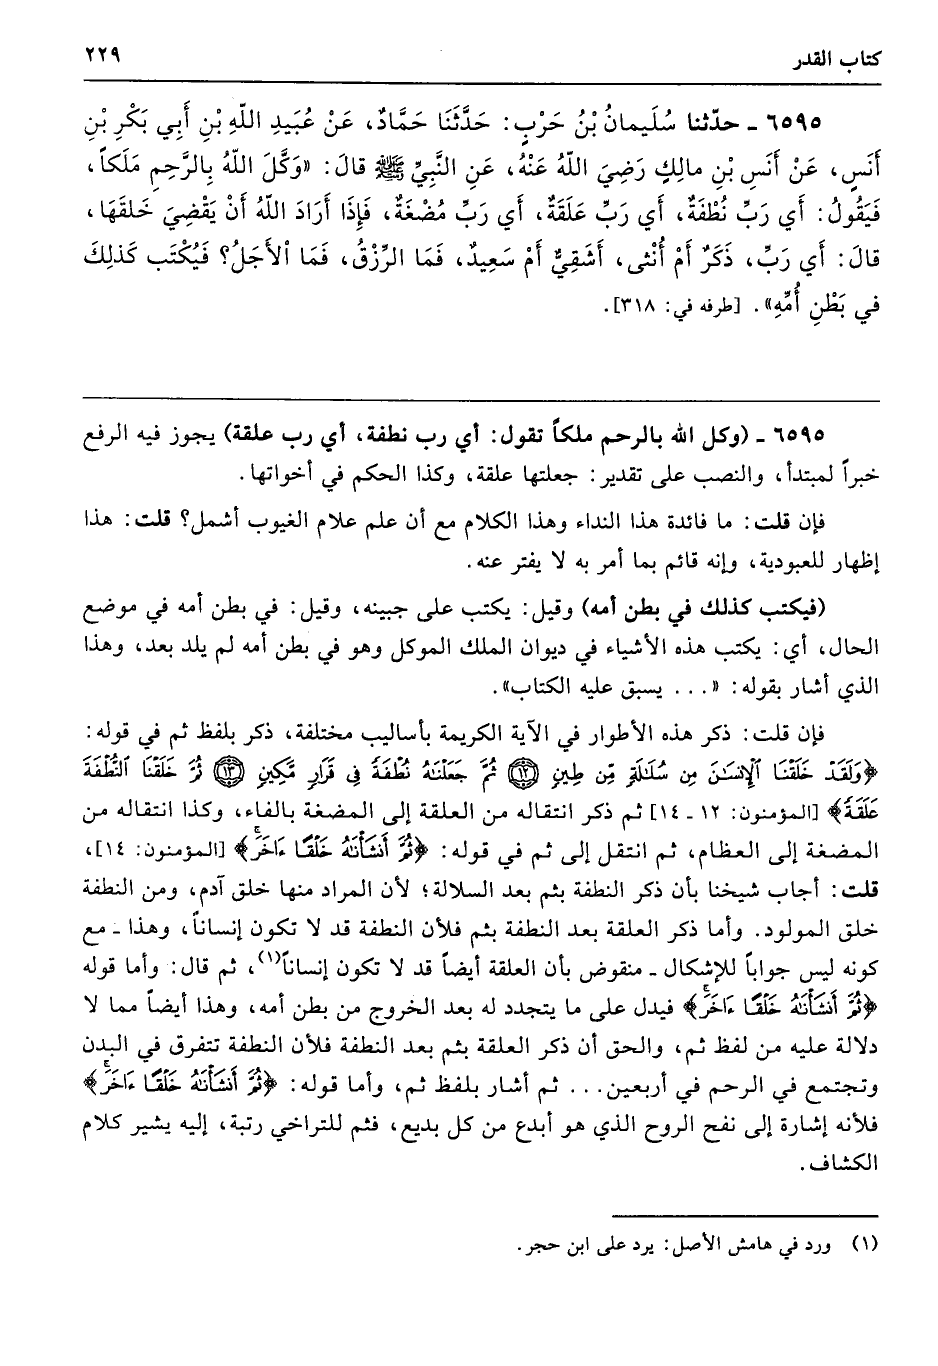 كتاب القدر ٢٢٩
٦٥٩٥ ـ حدّثنا سُلَيمانُ بْنُ حَرْبٍ: حَدَّثَنَا حَمَّادٌ، عَنْ عُبَيدِ اللّهِ بْنِ أَبِي بَكْرِ بْنِ
أَنَسٍ، عَنْ أَنَسِ بْنِ مالِكٍ رَضِيَ اللّهُ عَنْهُ، عَنِ النَّبِيِّ ﷺ قالَ: «وَكَّلَ اللّهُ بِالرَّحِمِ مَلَكاً،
فَيَقُولُ: أَي رَبِّ نُطْفَةٌ، أَي رَبِّ عَلَقَةٌ، أَي رَبِّ مُضْغَةٌ، فَإِذَا أَرَادَ اللّهُ أَنْ يَقْضِيَ خَلقَهَا،
قالَ: أَي رَبِّ، ذَكَرٌ أَمْ أُنْثى، أَشَقِيٌّ أَمْ سَعِيدٌ، فَمَا الرِّزْقُ، فَمَا الأَجَلُ؟ فَيُكْتَب كَذلِكَ
في بَطْنِ أُمِّهِ». [طرفه في: ٣١٨].
٦٥٩٥ ـ (وكل الله بالرحم ملكاً تقول: أي رب نطفة، أي رب علقة) يجوز فيه الرفع
خبراً لمبتدأ، والنصب على تقدير: جعلتها علقة، وكذا الحكم في أخواتها.
فإن قلت: ما فائدة هذا النداء وهذا الكلام مع أن علم علام الغيوب أشمل؟ قلت: هذا
إظهار للعبودية، وإنه قائم بما أمر به لا يفتر عنه.
(فيكتب كذلك في بطن أمه) وقيل: يكتب على جبينه، وقيل: في بطن أمه في موضع
الحال، أي: يكتب هذه الأشياء في ديوان الملك الموكل وهو في بطن أمه لم يلد بعد، وهذا
الذي أشار بقوله: «... يسبق عليه الكتاب».
فإن قلت: ذكر هذه الأطوار في الآية الكريمة بأساليب مختلفة، ذكر بلفظ ثم في قوله:
﴿وَلَقَدْ خَلَقْنَا ٱلْإِنسَٰنَ مِن سُلَٰلَةٍ مِّن طِينٍ ﴿١٢﴾ ثُمَّ جَعَلْنَٰهُ نُطْفَةً فِى قَرَارٍ مَّكِينٍ ﴿١٣﴾ ثُمَّ خَلَقْنَا ٱلنُّطْفَةَ
عَلَقَةً﴾ [المؤمنون: ١٢ ـ ١٤] ثم ذكر انتقاله من العلقة إلى المضغة بالفاء، وكذا انتقاله من
المضغة إلى العظام، ثم انتقل إلى ثم في قوله: ﴿ثُمَّ أَنشَأْنَٰهُ خَلْقًا ءَاخَرَۚ﴾ [المؤمنون: ١٤]،
قلت: أجاب شيخنا بأن ذكر النطفة بثم بعد السلالة؛ لأن المراد منها خلق آدم، ومن النطفة
خلق المولود. وأما ذكر العلقة بعد النطفة بثم فلأن النطفة قد لا تكون إنساناً، وهذا ـ مع
كونه ليس جواباً للإشكال ـ منقوض بأن العلقة أيضاً قد لا تكون إنساناً(١)، ثم قال: وأما قوله
﴿ثُمَّ أَنشَأْنَٰهُ خَلْقًا ءَاخَرَۚ﴾ فيدل على ما يتجدد له بعد الخروج من بطن أمه، وهذا أيضاً مما لا
دلالة عليه من لفظ ثم، والحق أن ذكر العلقة بثم بعد النطفة فلأن النطفة تتفرق في البدن
وتجتمع في الرحم في أربعين... ثم أشار بلفظ ثم، وأما قوله: ﴿ثُمَّ أَنشَأْنَٰهُ خَلْقًا ءَاخَرَۚ﴾
فلأنه إشارة إلى نفح الروح الذي هو أبدع من كل بديع، فثم للتراخي رتبة، إليه يشير كلام
الكشاف.
(١) ورد في هامش الأصل: يرد على ابن حجر.